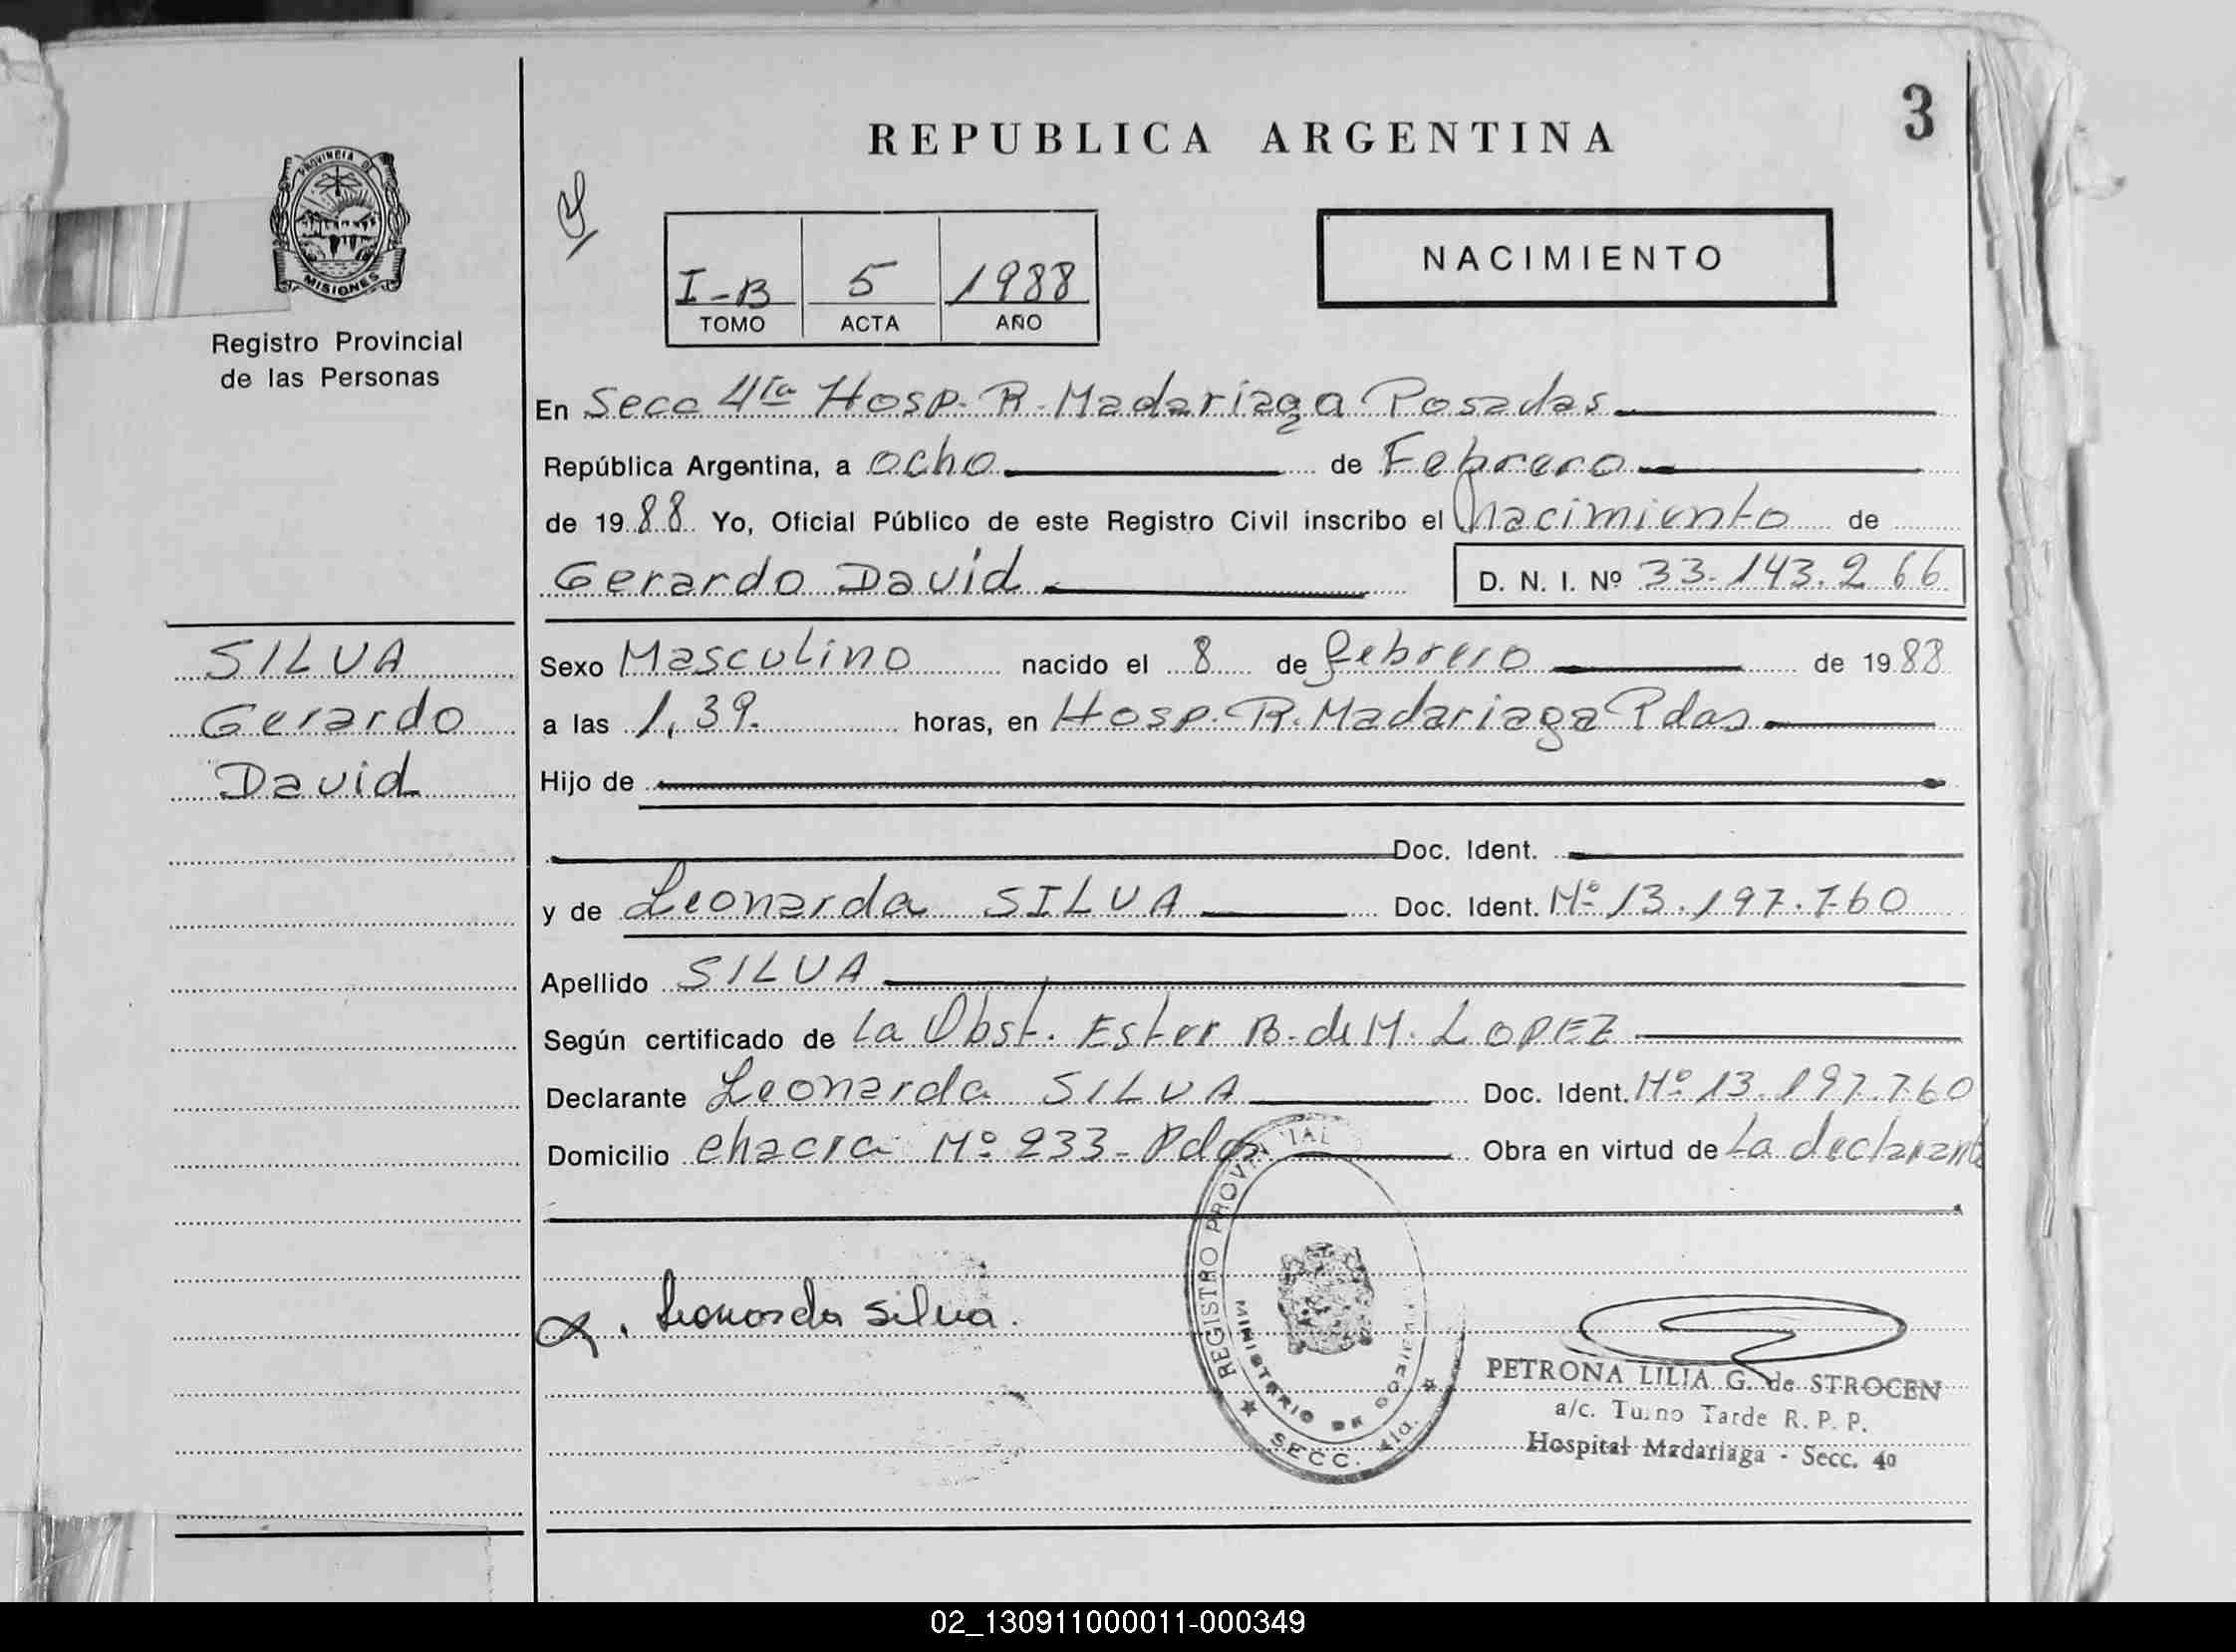 REPUBLICA ARGENTINA
3
PROVINCIA DE
MISIONES
Registro Provincial
de las Personas
I-B 5 1988
TOMO ACTA AÑO
NACIMIENTO
En Secc 4ta Hosp. R. Madariaga Posadas
República Argentina, a ocho de Febrero
de 1988 Yo, Oficial Público de este Registro Civil inscribo el Nacimiento de
Gerardo David D. N. I. Nº 33.143.266
SILVA
Gerardo
David
Sexo Masculino nacido el 8 de febrero de 1988
a las 1,39. horas, en Hosp. R. Madariaga Pdas
Hijo de
Doc. Ident.
y de Leonarda SILVA Doc. Ident. Nº 13.197.760
Apellido SILVA
Según certificado de La Obst. Ester B. de M. LOPEZ
Declarante Leonarda SILVA Doc. Ident. Nº 13.197.760
Domicilio chacra Nº 233- Pdas Obra en virtud de La declarante
Leonarda Silva.
REGISTRO PROVINCIAL
MINISTERIO DE GOBIERNO
SECC. 4ta.
PETRONA LILIA G. de STROCEN
a/c. Turno Tarde R. P. P.
Hospital Madariaga - Secc. 4a
02_130911000011-000349